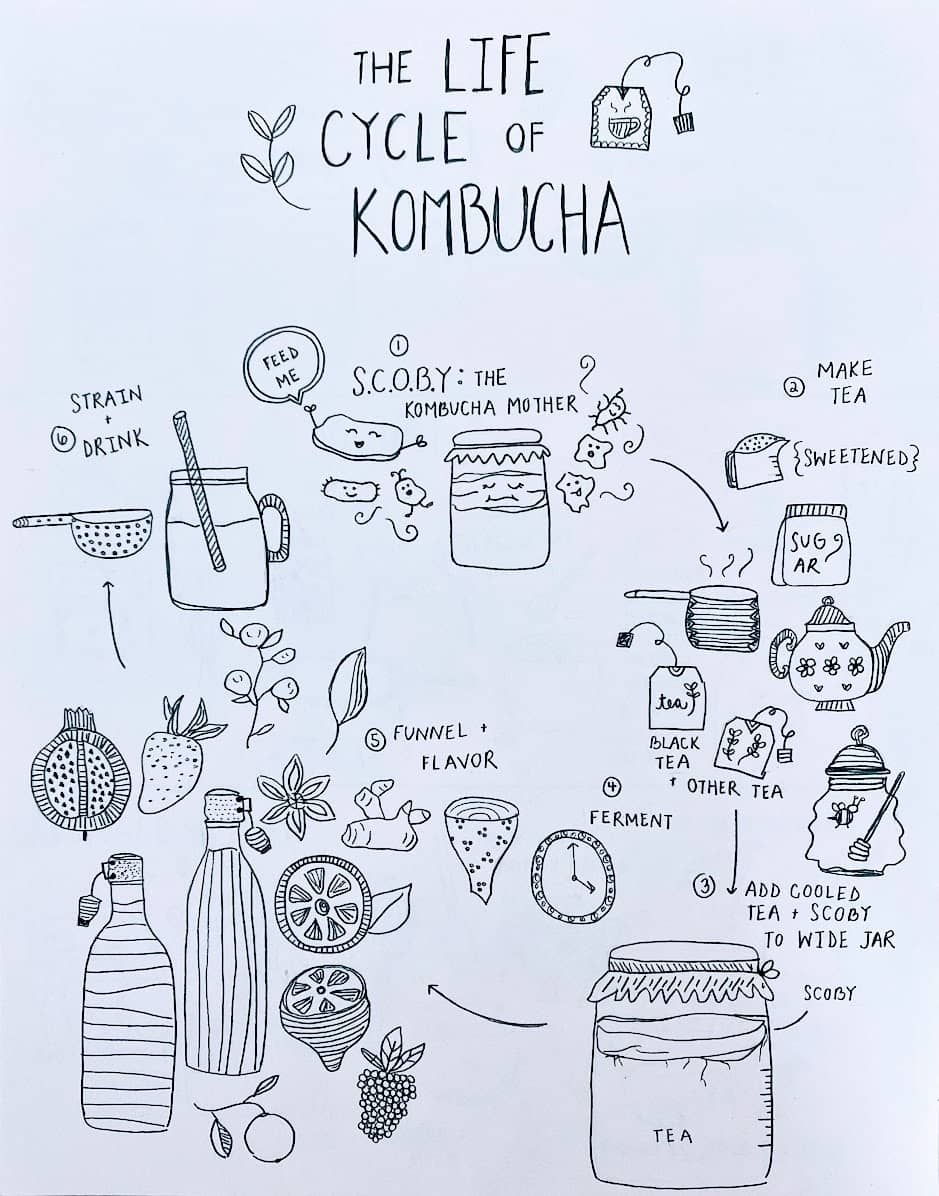 THE LIFE
CYCLE OF
KOMBUCHA
FEED
ME
①
S.C.O.B.Y: THE
KOMBUCHA MOTHER
② MAKE
TEA
{SWEETENED}
SUG
AR
tea
BLACK
TEA
+ OTHER TEA
③ ADD COOLED
TEA + SCOBY
TO WIDE JAR
SCOBY
TEA
④
FERMENT
⑤ FUNNEL +
FLAVOR
STRAIN
+
⑥ DRINK